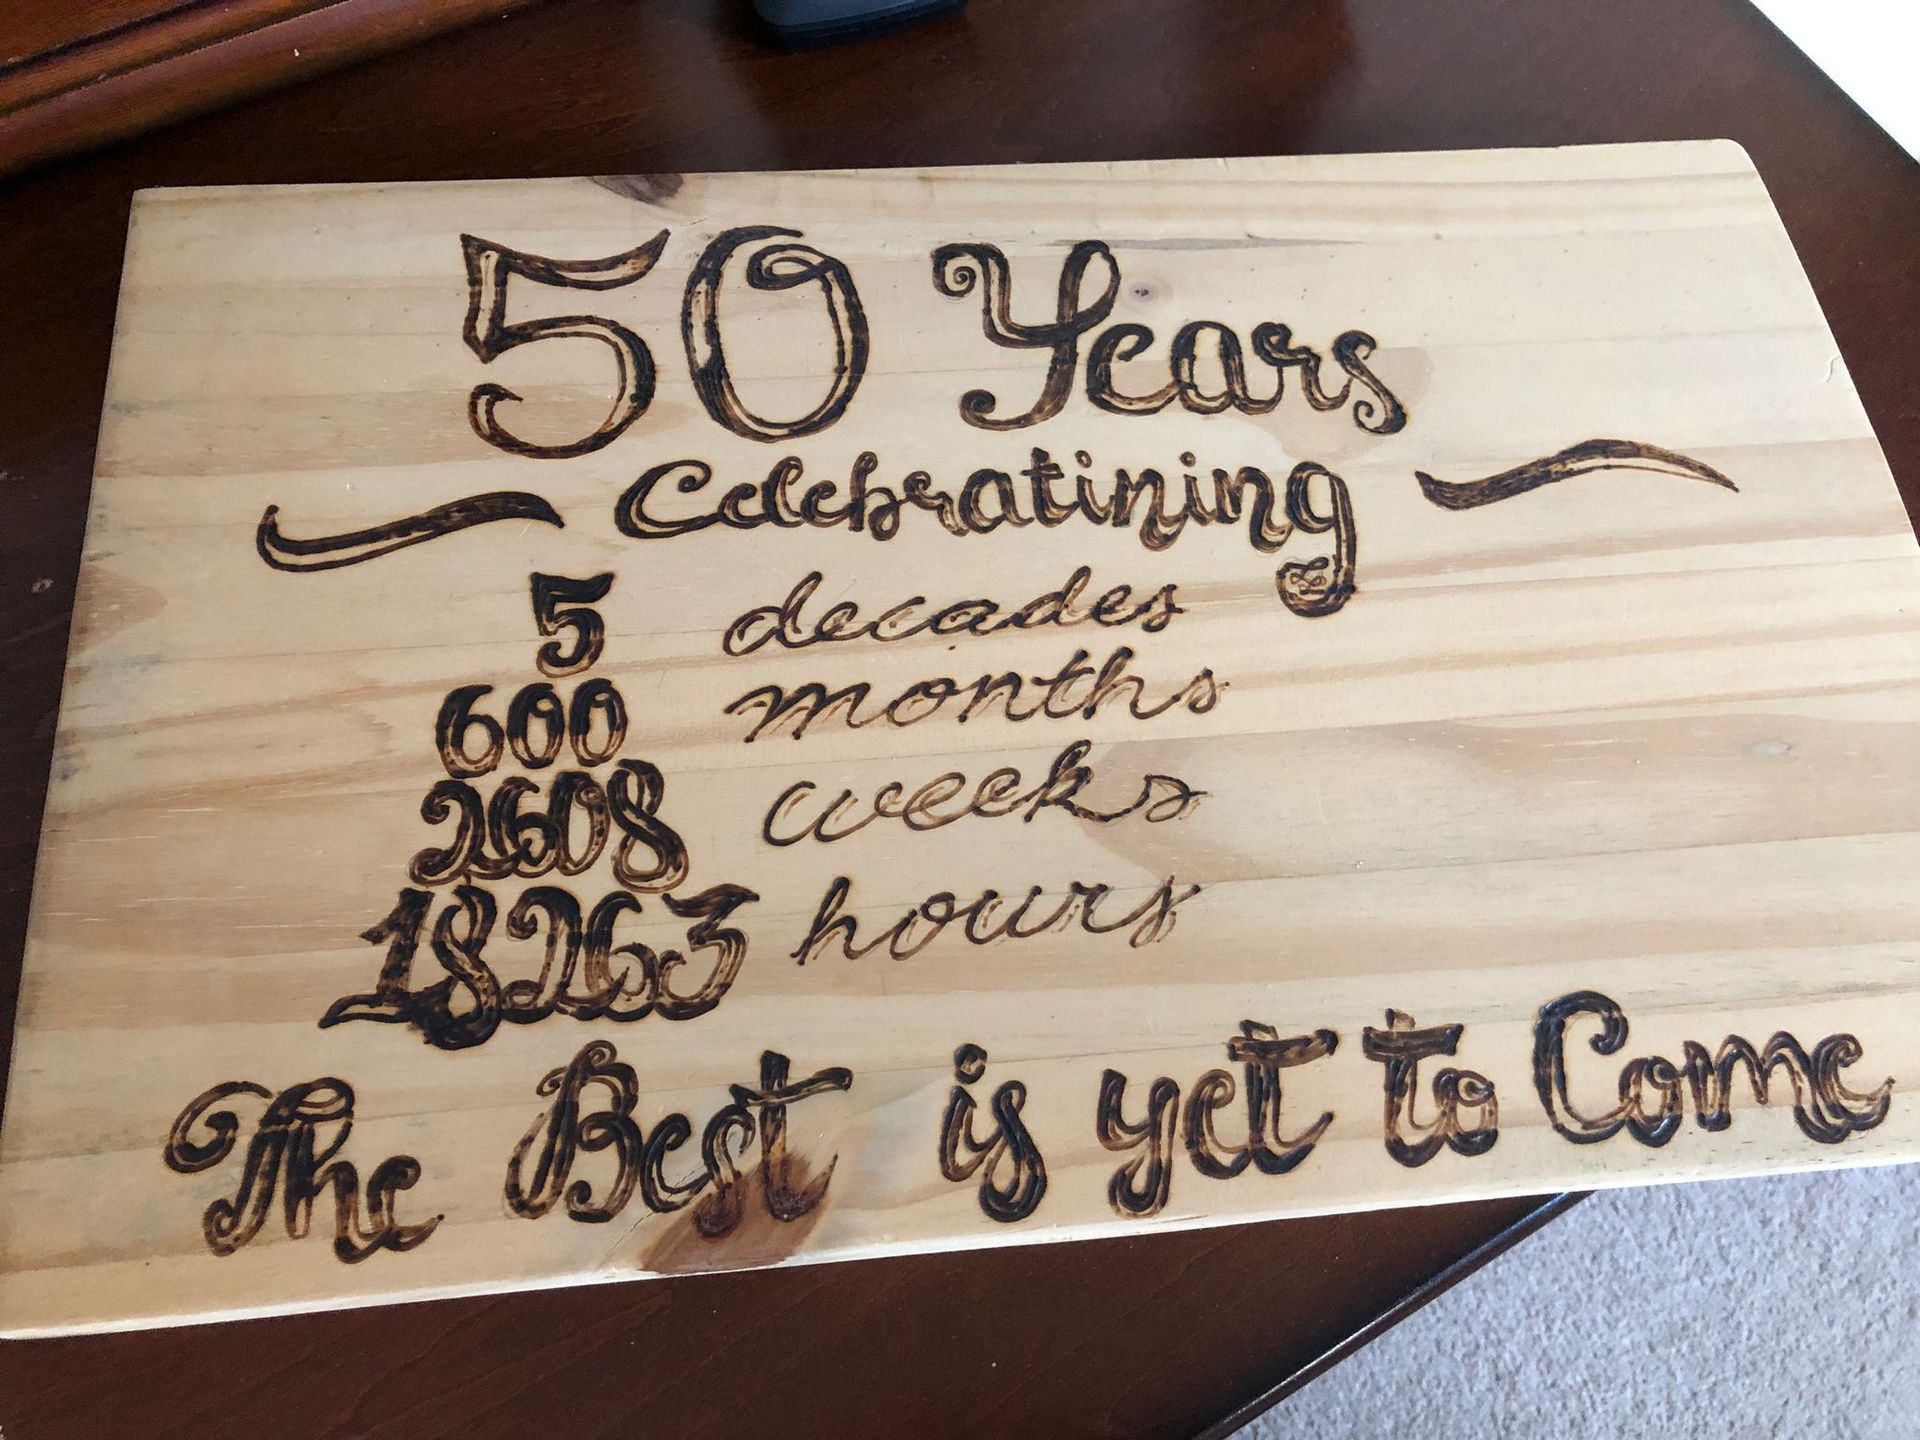 50 Years
Celebratining
5 decades
600 months
2608 weeks
18263 hours
The Best is yet to Come